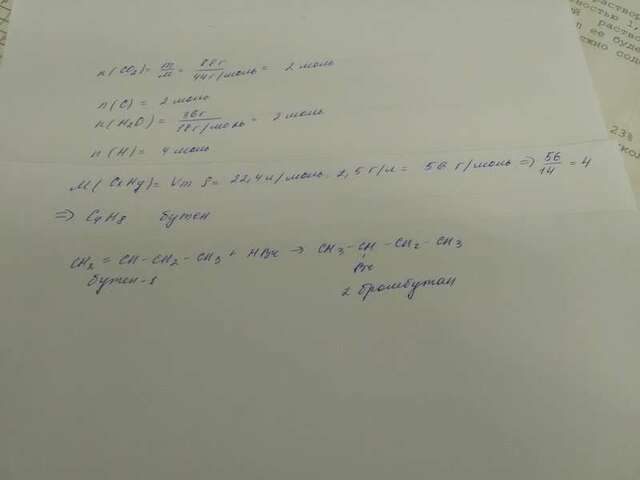 раствор
ностью 1,
раство
ее буд
жно сод
23%
n(CO2) = m/M = 88г/44г/моль = 2 моль
n(C) = 2 моль
n(H2O) = 36г/18г/моль = 2 моль
n(H) = 4 моль
M(CxHy) = Vm ρ = 22,4л/моль · 2,5г/л = 56 г/моль => 56/14 = 4
=> C4H8 бутен
CH2 = CH-CH2-CH3 + HBr -> CH3-CH-CH2-CH3
Br
бутен-1 2 бромбутан